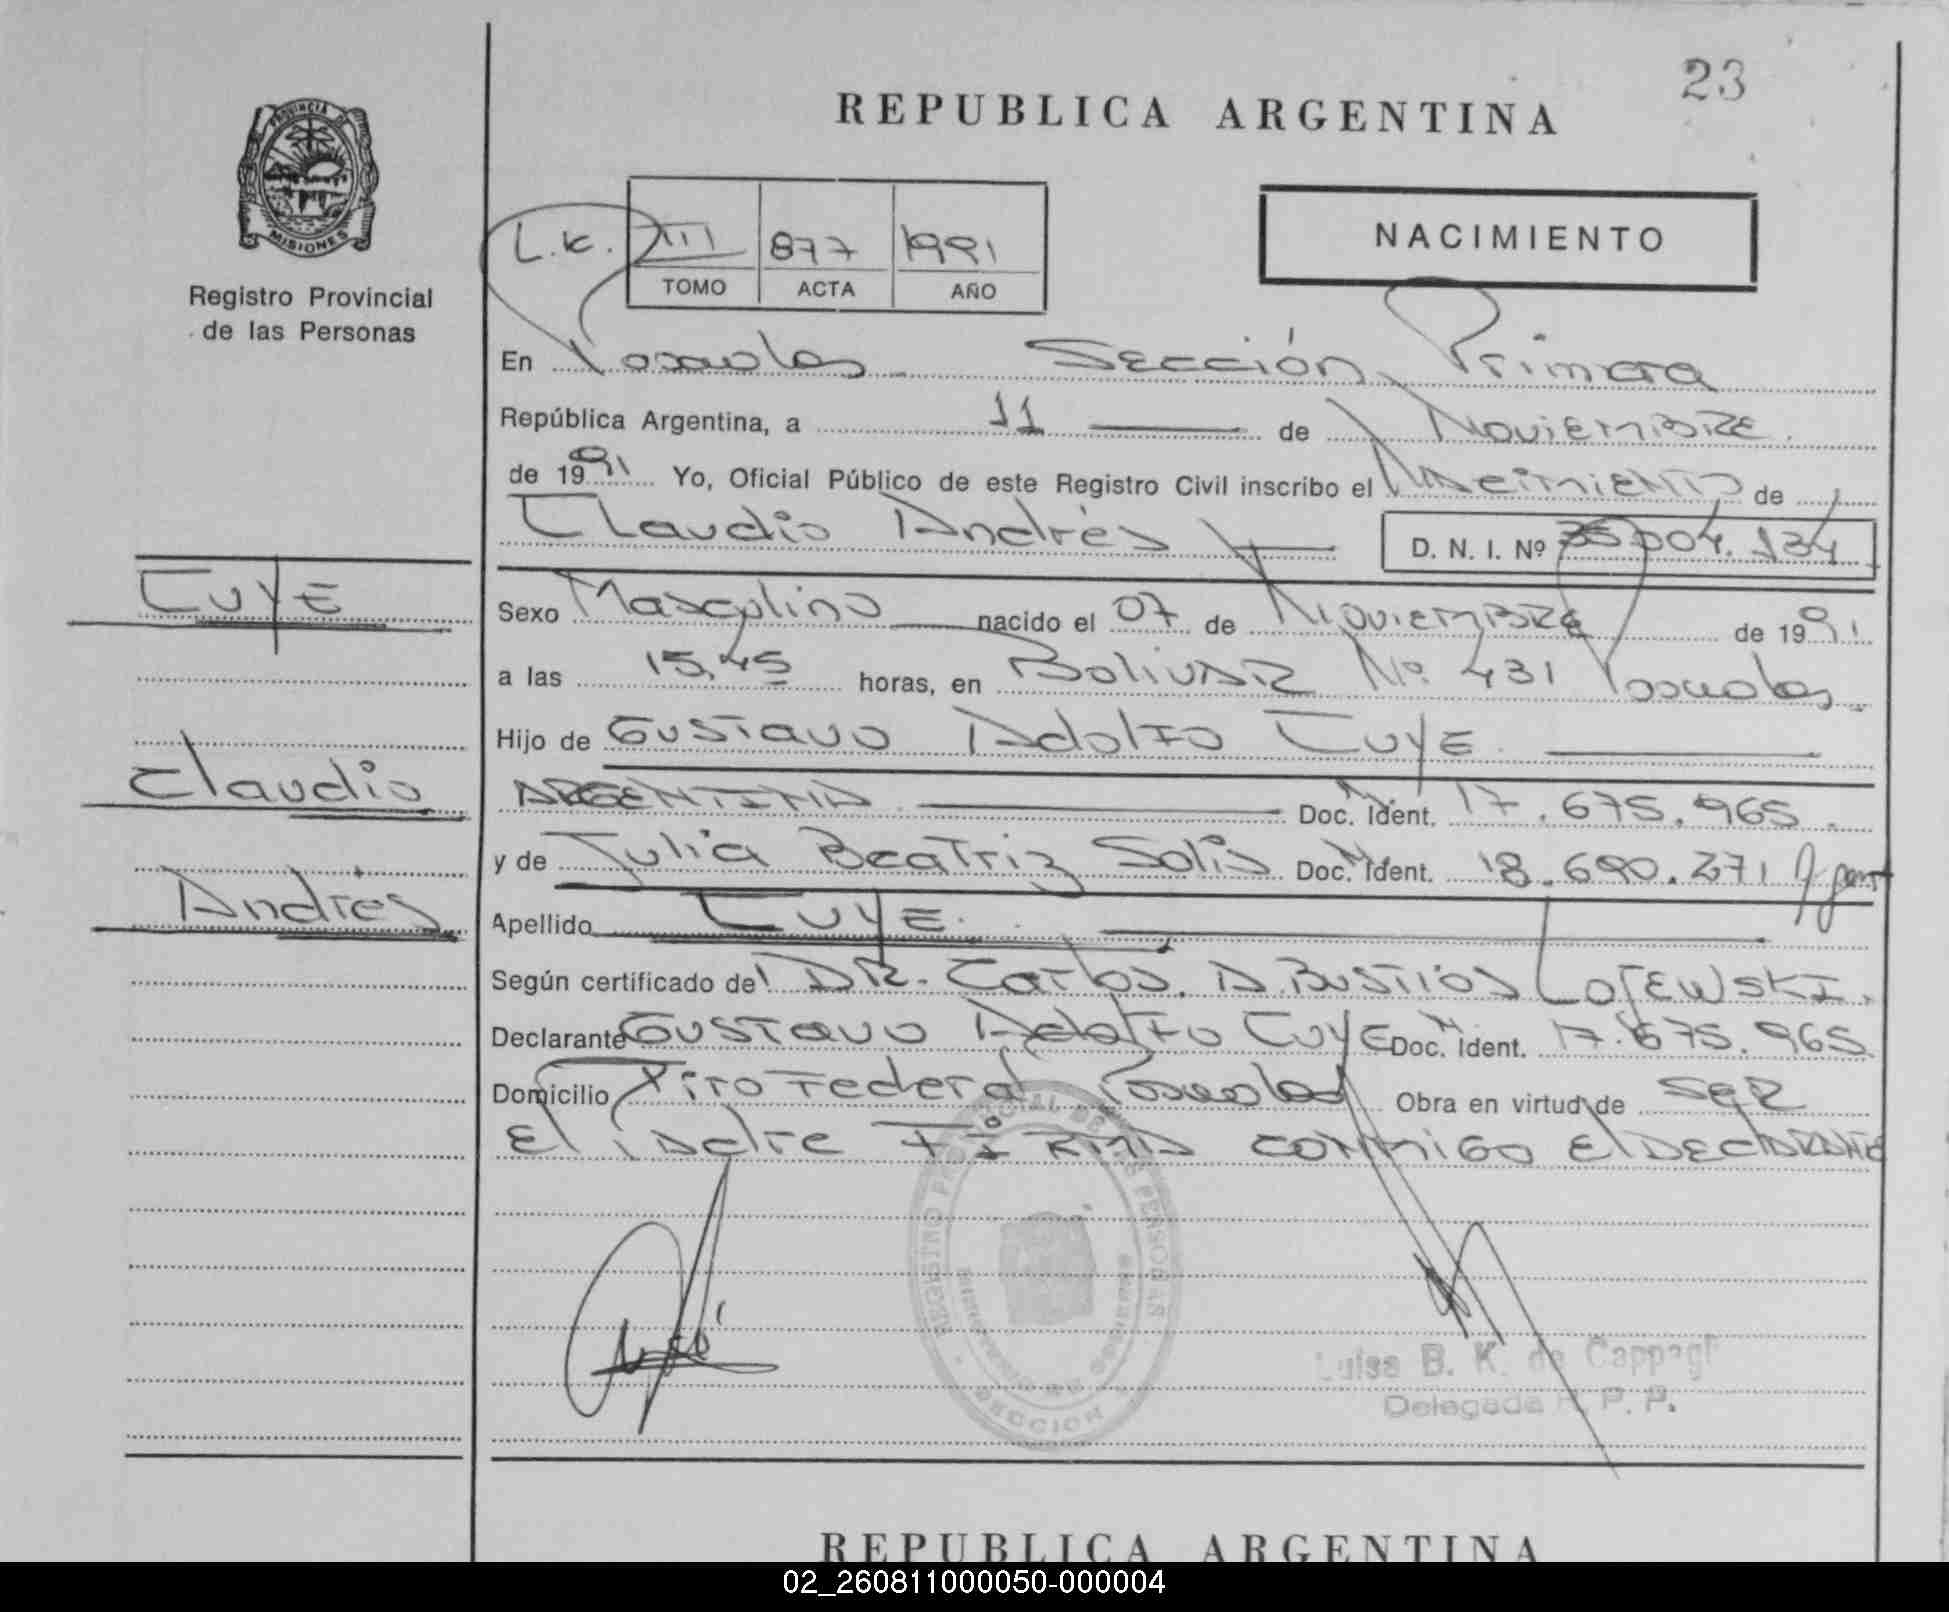 23
REPUBLICA ARGENTINA
PROVINCIA DE
MISIONES
Registro Provincial
de las Personas
L.K. III 877 1991
TOMO ACTA AÑO
NACIMIENTO
En Posadas Sección Primera
República Argentina, a 11 de Noviembre
de 1991 Yo, Oficial Público de este Registro Civil inscribo el Nacimiento de
Claudio Andrés D. N. I. Nº 35.004.134
CUYE
Sexo Masculino nacido el 07 de Noviembre de 1991
a las 15,45 horas, en Bolivar Nº 431 Posadas
Hijo de Gustavo Adolfo Cuye
Claudio
Argentina Doc. Ident. 17.675.965
y de Julia Beatriz Solis Doc. Ident. 18.690.271
Andrés
Apellido CUYE
Según certificado del DR. Carlos. A. Bustios
Declarante Gustavo Adolfo Cuye Doc. Ident. 17.675.965
Domicilio Tiro Federal Posadas Obra en virtud de ser
El padre Firma conmigo el declarante
REGISTRO PROVINCIAL DE LAS PERSONAS
Luisa B. K. de
Delegada R. P. P.
REPUBLICA ARGENTINA
02_260811000050-000004